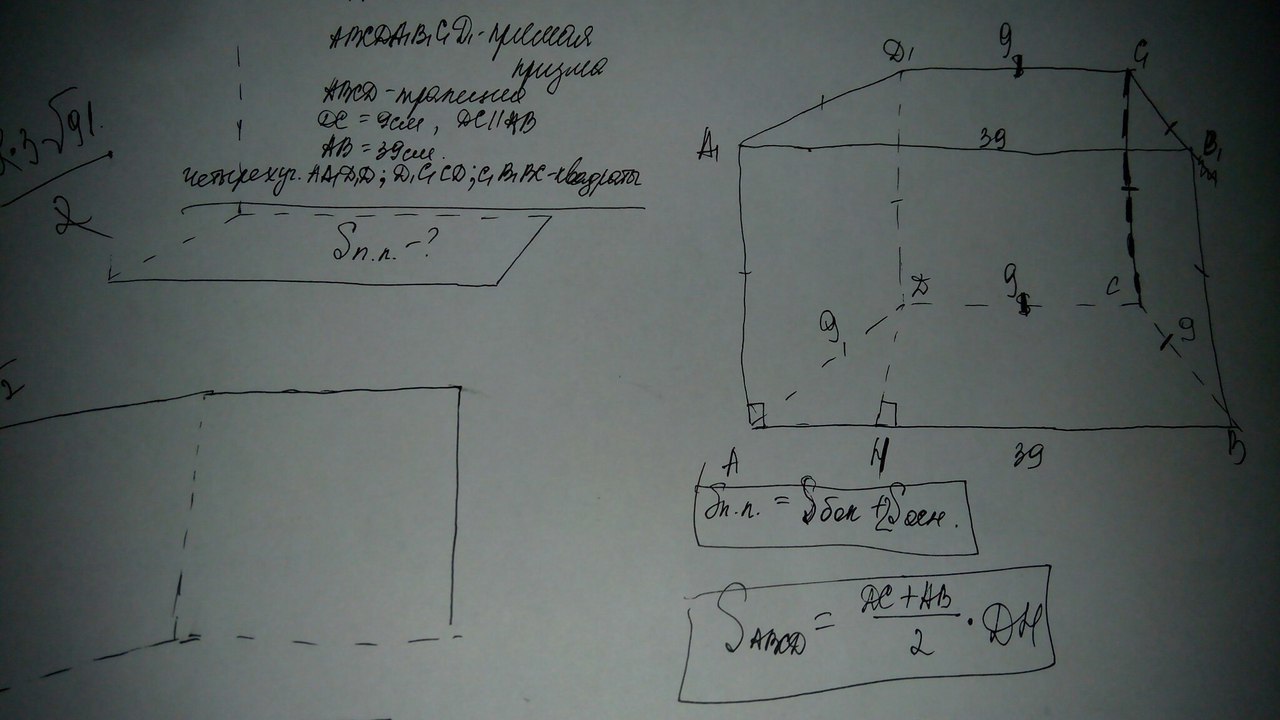 ABCDA₁B₁C₁D₁ - прямая
призма
ABCD - трапеция
DC = 9см, DC || AB
AB = 39см.
четырехуг. AA₁D₁D; D₁C₁CD; C₁B₁BC - квадраты
Sп.п. - ?
3√91
2
2
D₁
9
C₁
A₁
39
B₁
D
9
C
9
9
A
H
39
B
Sп.п. = Sбок + 2Sосн.
S_ABCD = (DC + AB)/2 · DH